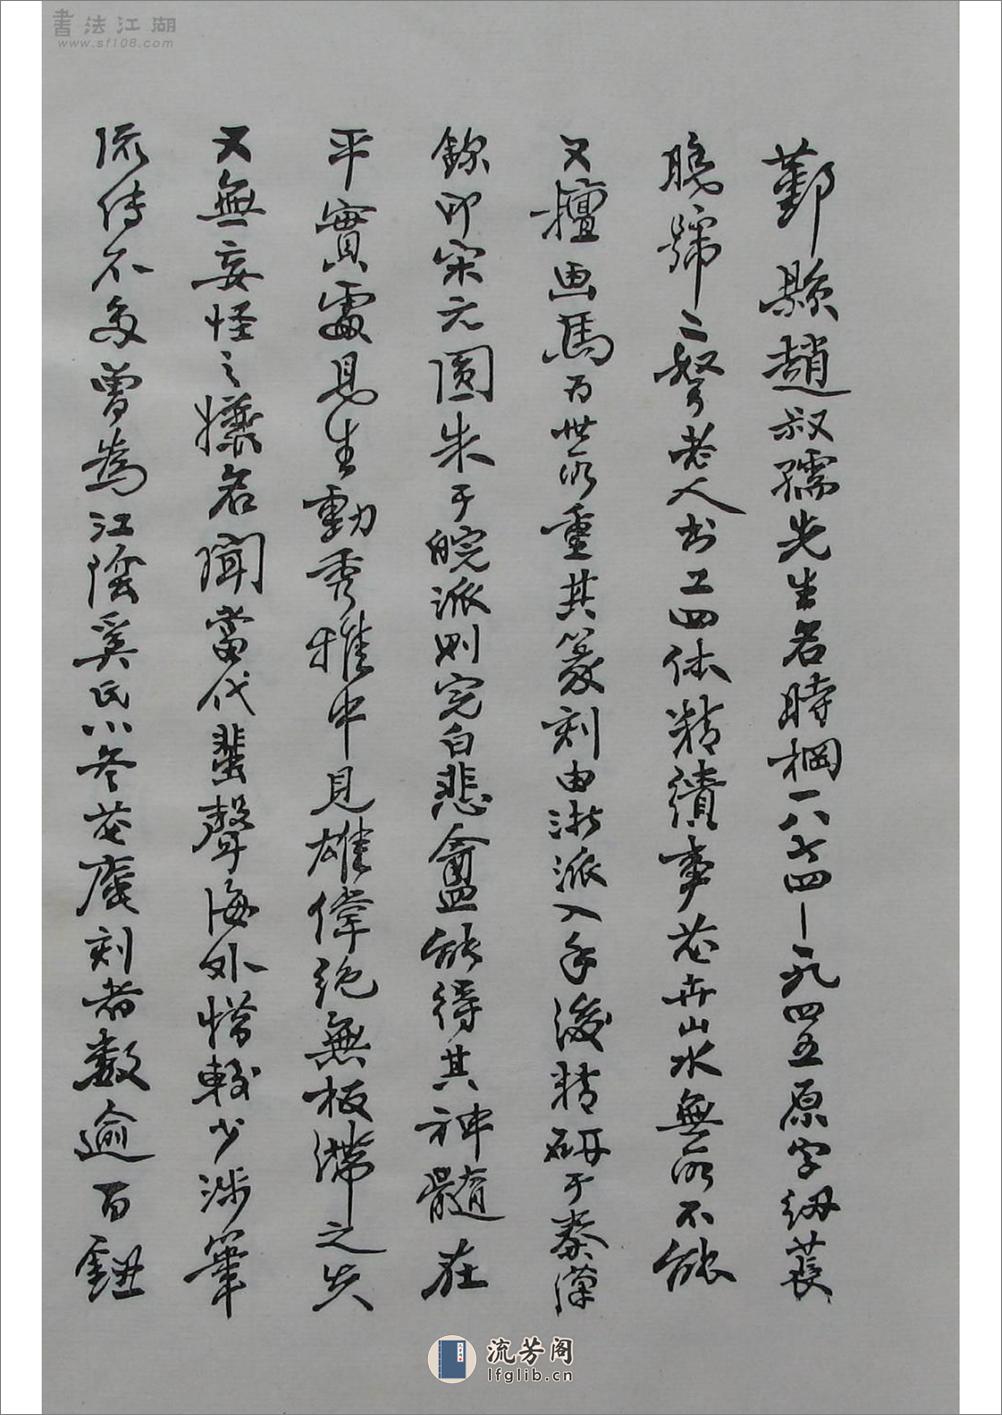 書法江湖
www.sf108.com
鄞縣趙叔孺先生名時棡一八七四—一九四五原字紉萇
晚號二弩老人书工四体精繢事花卉山水無所不能
又擅画馬为世所重其篆刻由浙派入手後精研于秦漢
鉨印宋元圆朱于皖派则完白悲盦能得其神髓在
平實處見生動秀雅中見雄偉絶無板滞之失
又無妄怪之嫌名聞當代蜚聲海外惜較少涉筆
流傳不多曾為江陰奚氏小冬花庵刻者数逾百鈕
流芳阁
lfglib.cn